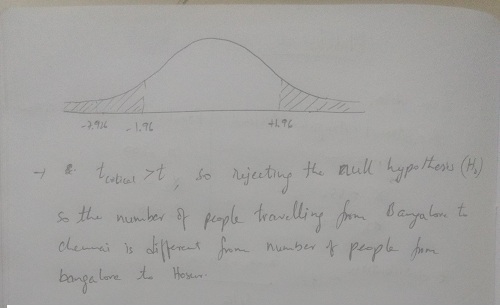 -2.936 -1.96 +1.96
→ t critical > t, so rejecting the null hypothesis (H₀)
so the number of people travelling from Bangalore to
chennai is different from number of people from
bangalore to Hosur.